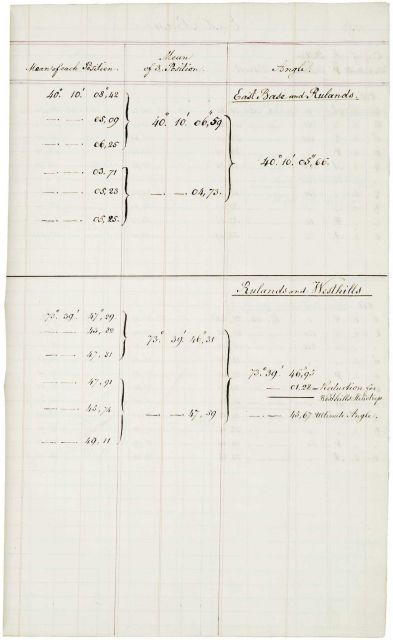 Mean of each Position.
Mean of 3. Position.
Angle.
East Base and Rulands.
40.° 10.′ 08″,42
— — 05,09
— — 06,25
40.° 10.′ 06″,59
— — 03,71
— — 05,23
— — 05,25
— — 04,73
40.° 10.′ 05″,66
Rulands and Westhills
73.° 39.′ 47″,29
— — 47,31
73.° 39.′ 46″,31
— — 47,91
— — 45,74
— — 49,11
— — 47,59
73.° 39.′
— 01,28 – Reduction for
Westhills Heliotrope
— — 45,67 Ultimate Angle.